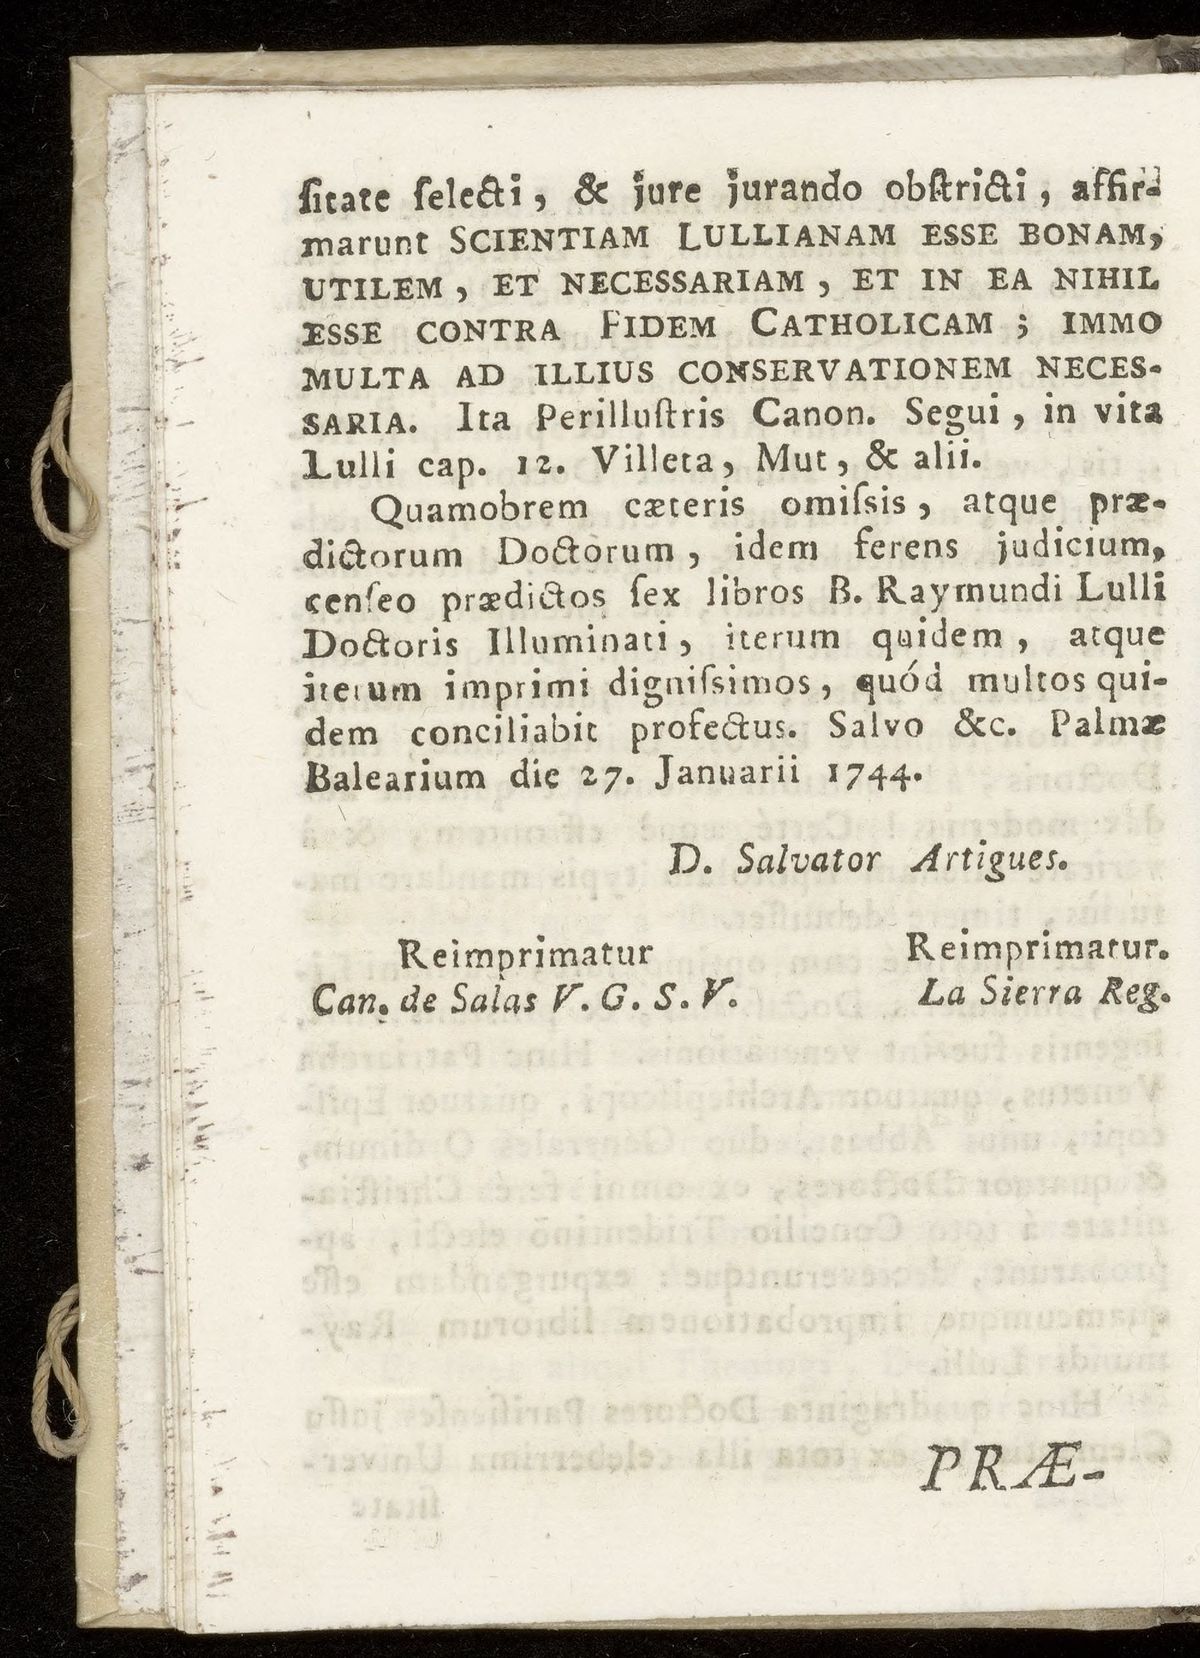 ſitate ſelecti, & jure jurando obſtricti, affir-
marunt SCIENTIAM LULLIANAM ESSE BONAM,
UTILEM, ET NECESSARIAM, ET IN EA NIHIL
ESSE CONTRA FIDEM CATHOLICAM; IMMO
MULTA AD ILLIUS CONSERVATIONEM NECES-
SARIA. Ita Perilluſtris Canon. Segui, in vita
Lulli cap. 12. Villeta, Mut, & alii.
Quamobrem cæteris omiſsis, atque præ-
dictorum Doctorum, idem ferens judicium,
cenſeo prædictos ſex libros B. Raymundi Lulli
Doctoris Illuminati, iterum quidem, atque
iterum imprimi digniſsimos, quód multos qui-
dem conciliabit profectus. Salvo &c. Palmæ
Balearium die 27. Januarii 1744.
D. Salvator Artigues.
Reimprimatur
Can. de Salas V. G. S. V.
Reimprimatur.
La Sierra Reg.
PRÆ-